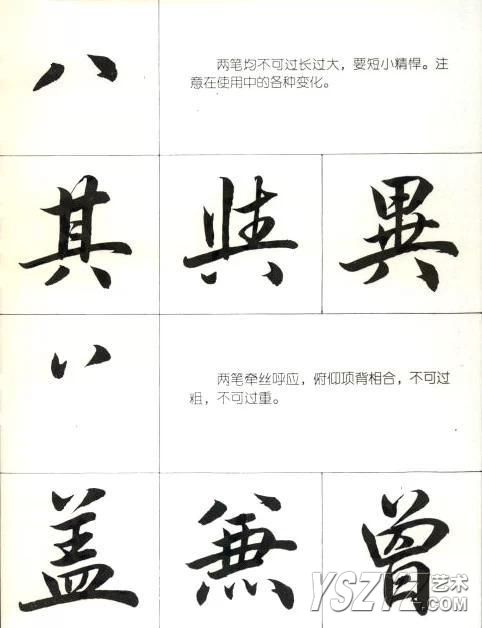 八
两笔均不可过长过大，要短小精悍。注
意在使用中的各种变化。
其 與 異
丷
两笔牵丝呼应，俯仰顶背相合，不可过
粗，不可过重。
盖 兼 曾
YSZYZ艺术
.COM